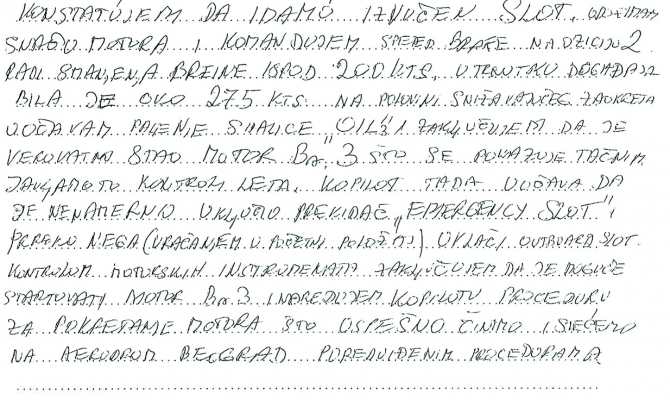 KONSTATUJEM DA IDAMO IZVUČEN SLOT, ODUZIMAM
SNAGU MOTORA I KOMANDUJEM SPEED BRAKE NA POZICIJU 2
RADI SMANJENJA BRZINE ISPOD 200 KTS. U TRENUTKU DOGAĐAJA
BILA JE OKO 275 KTS. NA POLOVINI SNIŽAVAJUĆEG ZAOKRETA
UOČAVAM PALJENJE SIJALICE "OIL 3" I ZAKLJUČUJEM DA JE
VEROVATNO STAO MOTOR Br. 3 ŠTO SE POKAZUJE TAČNIM
JAVLJAMO TO KONTROLI LETA. KOPILOT TADA UOČAVA DA
JE NENAMERNO UKLJUČIO PREKIDAČ "EMERGENCY SLOT" I
PREKO NJEGA (VRAĆANJEM U POČETNI POLOŽAJ) UVLAČI OUTBOARD SLOT.
KONTROLOM MOTORSKIH INSTRUMENATA ZAKLJUČUJEM DA JE MOGUĆE
STARTOVATI MOTOR Br. 3 I NAREĐUJEM KOPILOTU PROCEDURU
ZA POKRETANJE MOTORA ŠTO USPEŠNO ČINIMO I SLEĆEMO
NA AERODROM BEOGRAD PO PREDVIĐENIM PROCEDURAMA